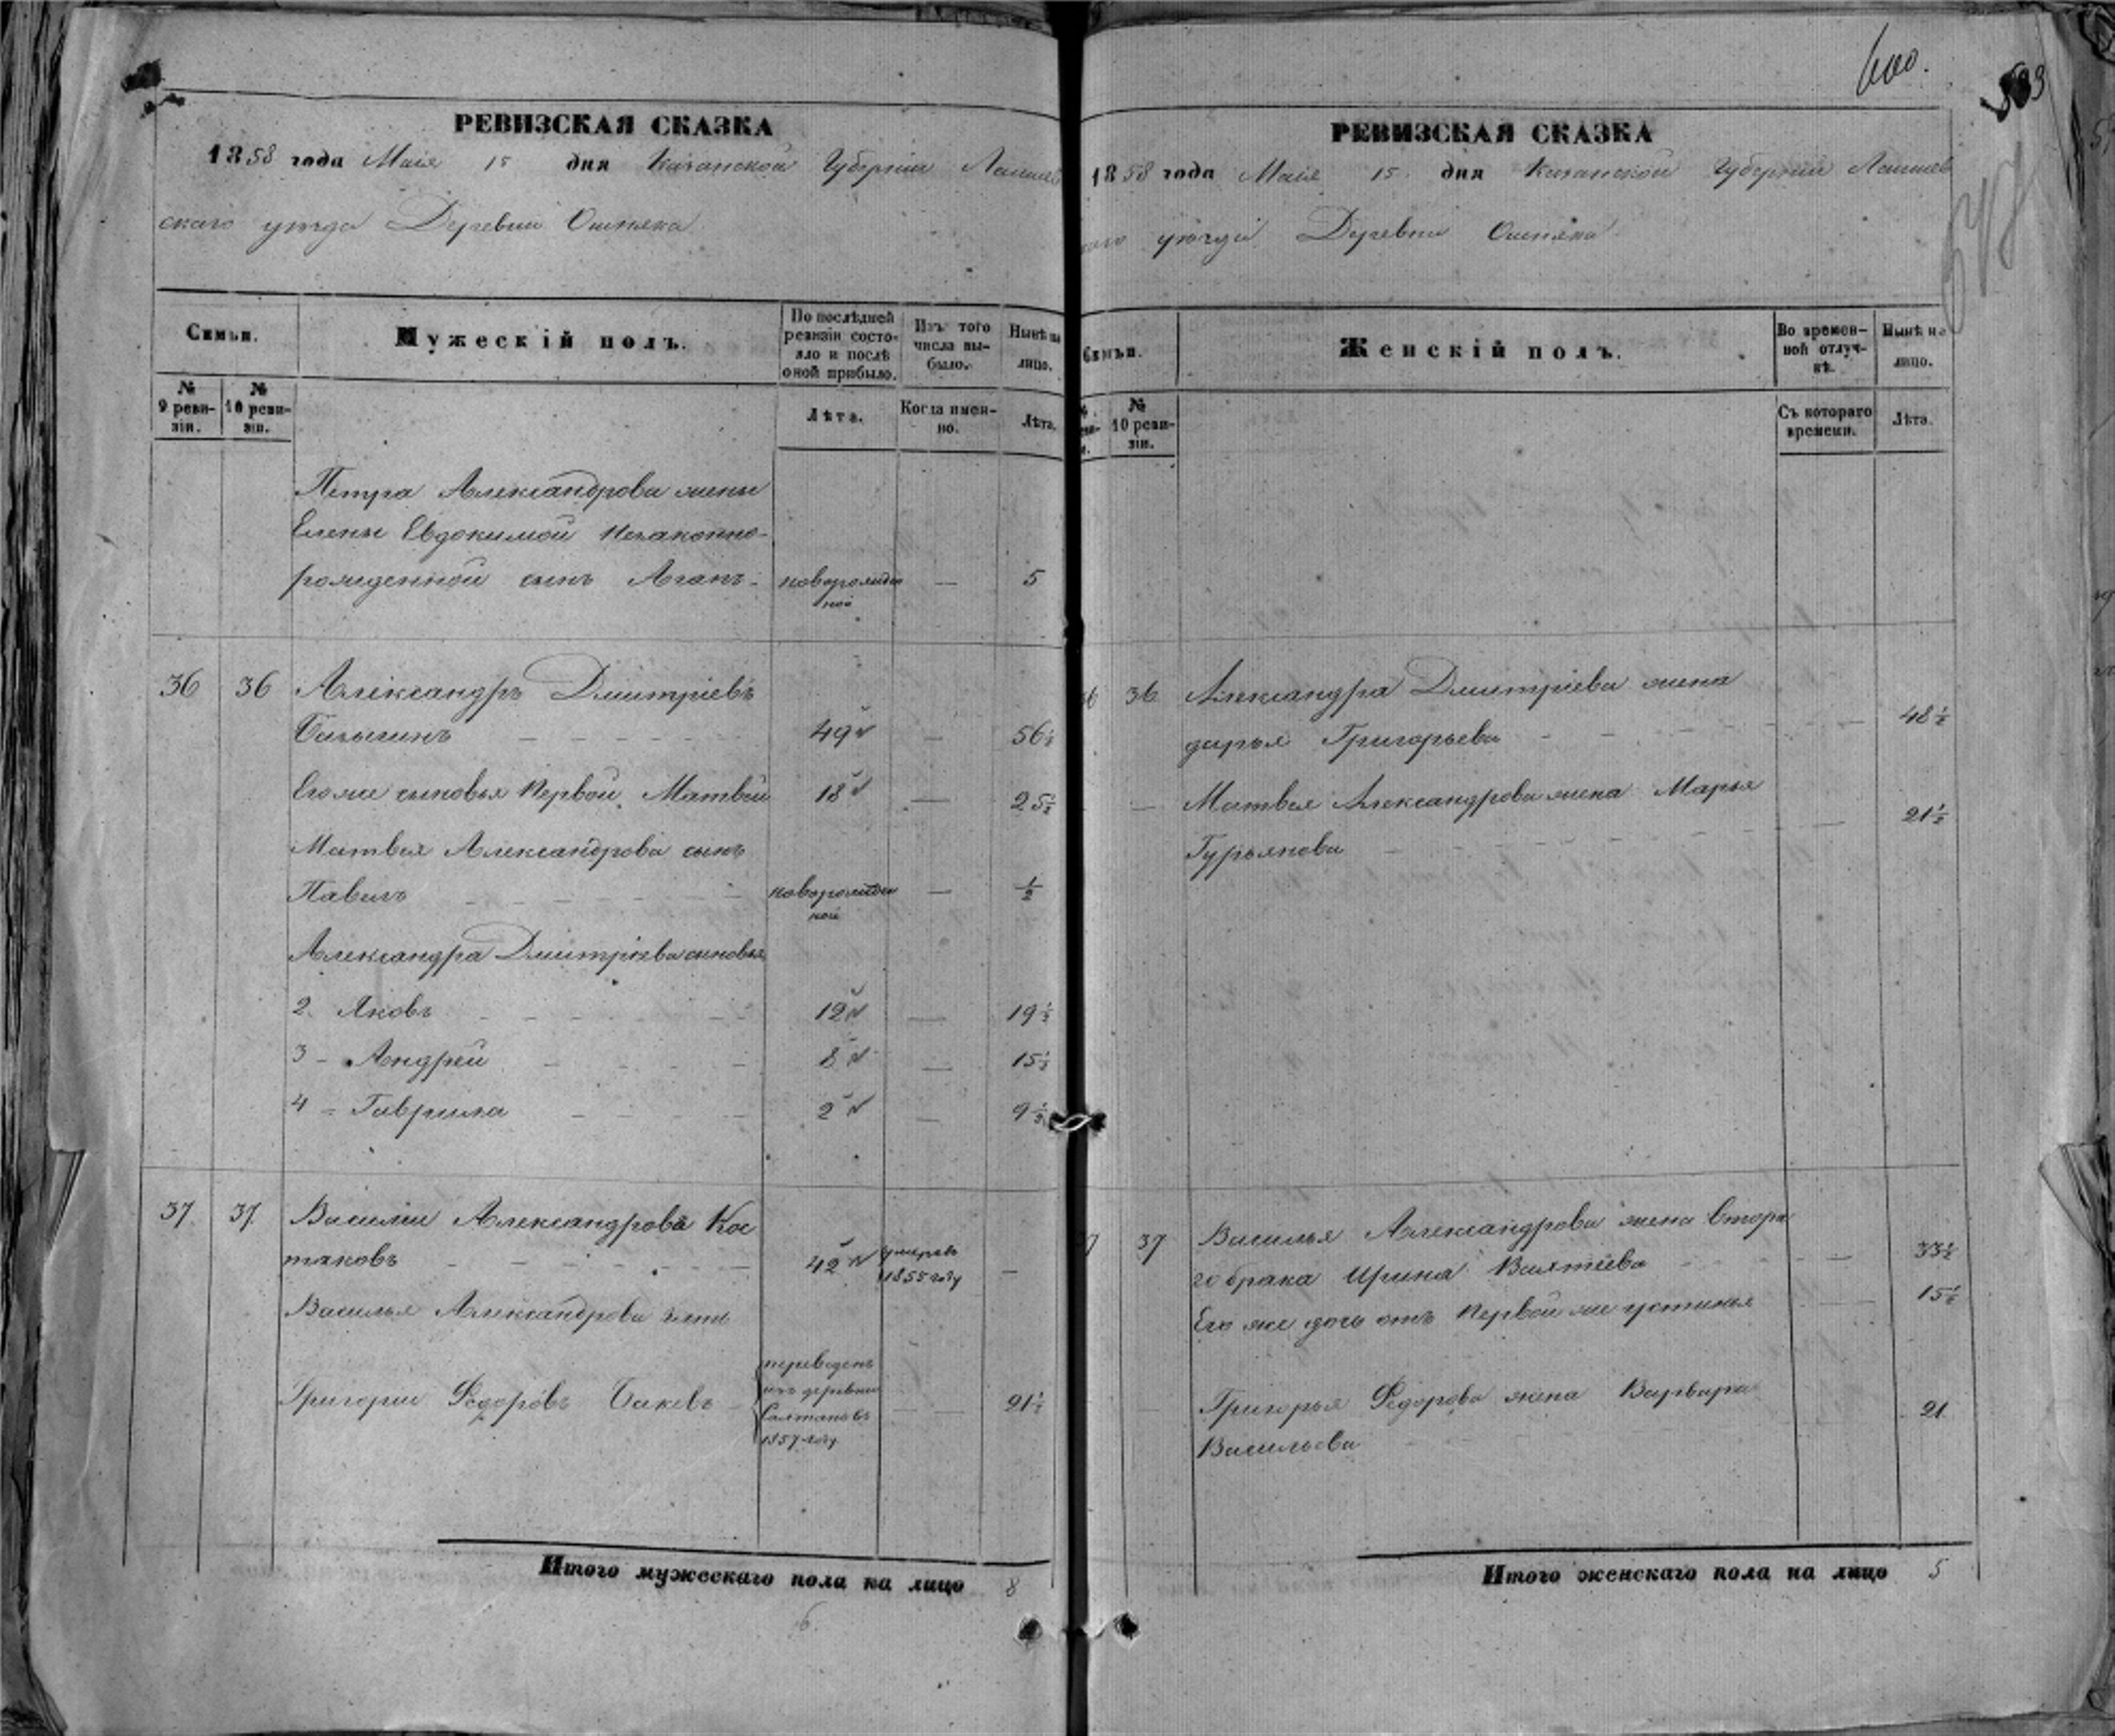 600.
РЕВИЗСКАЯ СКАЗКА
1858 года Маія 15 дня Казанской Губерніи Лаишев
скаго уѣзда Деревни Ошняка.
Семьи.
Мужескій полъ.
По послѣдней ревизіи состояло и послѣ оной прибыло.
Изъ того числа выбыло.
Нынѣ на лицо.
№ 9 ревизіи.
№ 10 ревизіи.
Лѣта.
Когда именно.
Лѣта.
Петра Александрова жены
Елены Евдокимой незаконно-
рожденной сынъ Агапъ - новорожден ной — 5
36 36 Александръ Дмитріевъ
49 — 56½
Егоже сыновья первой Матвей 18 — 25½
Матвея Александрова сынъ
Павелъ новорожден ной — ½
Александра Дмитріева сыновья
2. Яковъ 12 — 19½
3 - Андрей 8 — 15½
4 - Гаврила 2 — 9½
37. 37. Василий Александровъ Кос
таковъ 42 умеръ въ 1855 году —
Василья Александрова зять
Григорий Федоровъ переведенъ изъ деревни Салтановъ 1857 году — 21½
Итого мужескаго пола на лицо 8
6.
РЕВИЗСКАЯ СКАЗКА
1858 года Маія 15 дня Казанской Губерніи Лаишев
скаго уѣзда Деревни Ошняка.
Семьи.
Женскій полъ.
Во временной отлучкѣ.
Нынѣ на лицо.
№ 10 ревизіи.
Съ котораго времени.
Лѣта.
36 36 Александра Дмитріева жена
дарья Григорьева — 48½
— Матвея Александрова жена Марья
Гурьянова — 21½
37 37 Василья Александрова жена втора
го брака Ирина — 33½
Его же дочь отъ первой же устинья — 15½
Григорья Федорова жена Варвара
Васильева 21
Итого женскаго пола на лицо 5